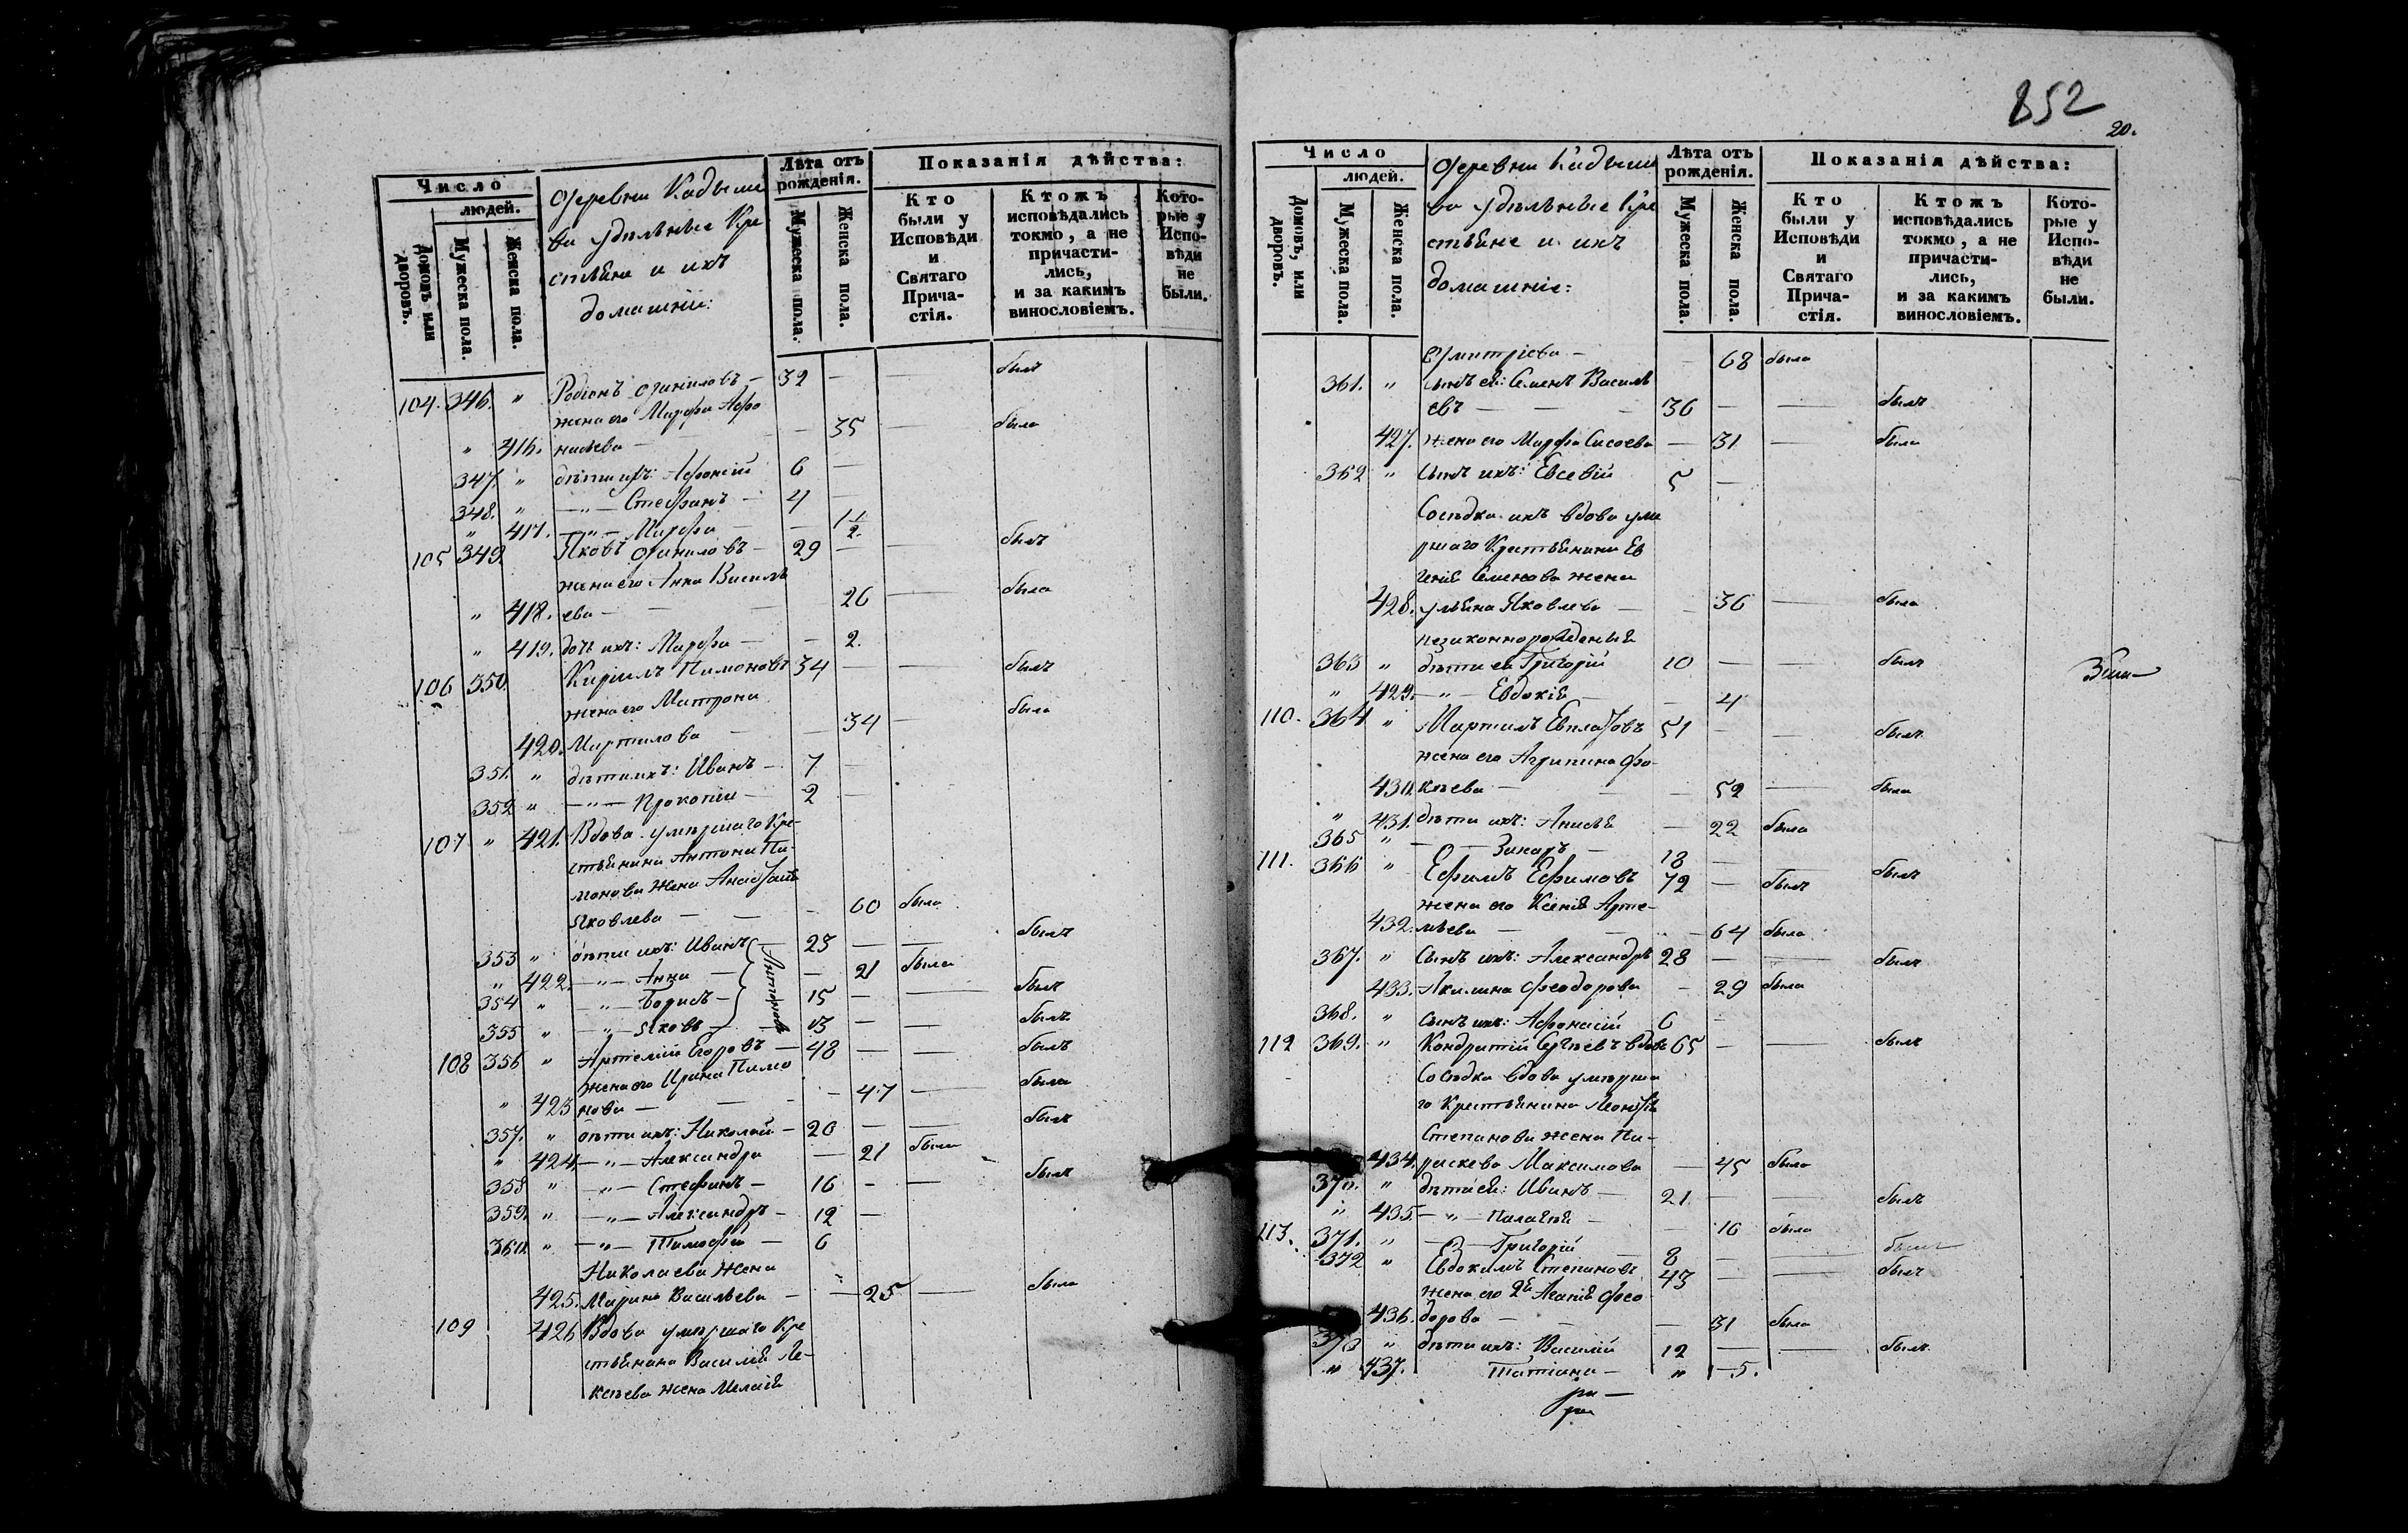 Число
людей.
Домовъ или дворовъ.
Мужеска пола.
Женска пола.
Деревни Кадыше
ва удѣльные Кре
стьяне и ихъ
домашніе:
Лѣта отъ рожденія.
Мужеска пола.
Женска пола.
Показанія дѣйства:
Кто были у Исповѣди и Святаго Прича-стія.
Ктожъ исповѣдались токмо, а не причасти-лись, и за какимъ винословіемъ.
Кото-рые у Испо-вѣди не были.
104. 346. " Родіонъ Даниловъ — 32 — — былъ
жена его Марфа Афо
" 416. насьева — — 35 — была
347. " дѣти ихъ: Афонасій 6 —
348. " — " — Стефанъ — 4 —
" 417. — " — Марфа — — 1 1/2.
105 349. Яковъ Даниловъ — 29 — — былъ
жена его Анна Василь
" 418. ева — — — 26 — была
" 419. дочь ихъ: Марфа — — 2.
106 350. Кирилъ Пимоновъ 34 — — былъ
жена его Матрона
420. Мартинова — — 34 — была
351. " дѣти ихъ: Иванъ — 7 —
352 " — " — Прокопій — 2 —
107 " 421. Вдова умершаго Кре-
стьянина Антона Пи-
монова жена Анастасія
Яковлева — — — 60 была
353 " дѣти ихъ: Иванъ — 23 — — былъ
" 422. — " — Анна — — 21 была
Антоновы
354 " — " — Борисъ — 15 — — былъ
355 " — " — Яковъ — 13 — — былъ
108 356 " Артемій Егоровъ — 48 — — былъ
жена его Ирина Пимо
" 423 нова — — — 47 — была
357. " дѣти ихъ: Николай — 20 — — былъ
" 424. — " — Александра — 21 была
358 " — " — Стефанъ — 16 — — былъ
359. " — " — Александръ — 12 —
360. " — " — Тимофей — 6
Николаева жена
425. Марина Васильева — — 25 — была
109 426 Вдова умершаго Кре
стьянина Василія Але-
ксѣева жена Меланія
852
20.
Число
людей.
Домовъ, или дворовъ.
Мужеска пола.
Женска пола.
Деревни Кадыше
ва удѣльные Кре
стьяне и ихъ
домашніе:
Лѣта отъ рожденія.
Мужеска пола.
Женска пола.
Показанія дѣйства:
Кто были у Исповѣди и Святаго Прича-стія.
Ктожъ исповѣдались токмо, а не причасти-лись, и за какимъ винословіемъ.
Кото-рые у Испо-вѣди не были.
Дмитріева — — 68 была
361. " сынъ ея: Семенъ Василь
евъ — — — 36 — — былъ
427. жена его Марфа Сисоева — 31 — была
362 " Сынъ ихъ: Евсевій 5 —
Сосѣдка ихъ вдова уме
ршаго Крестьянина Ев
генія Семенова жена
428. Ульяна Яковлева — — 36 — была
незаконнорожденныя
363 " дѣти ея Григорій 10 — — былъ
" 429. — " — Евдокія — — 4
110. 364 " Мартинъ Евплаловъ 51 — — былъ
жена его Агрипина Фо-
430. кѣева — — — 52 — была
" 431. дѣти ихъ: Анисья — 22 была
365 " — — Захаръ — 18 — былъ
111. 366 " Ефимъ Ефимовъ 72 — былъ
жена его Ксенія Арте-
432. мьева — — — 64 была
367. " Сынъ ихъ: Александръ 28 — — былъ
433. Акилина Феодорова — 29 была
368. " Сынъ ихъ: Афонасій 6 —
112 369. " Кондратій Сергѣевъ вдовъ 65 — — былъ
Сосѣдка вдова умерша
го Крестьянина Леонтія
Степанова жена Па-
434. раскева Максимова — 45 была
370. " дѣти ея: Иванъ — 21. — — былъ
" 435. — " — Палагѣя — — 16 была
113. 371. " — — Григорій — 8 — — былъ
372 " Евдокимъ Степановъ 43 — — былъ
жена его 2я Агапія Фео
436. дорова — — — 31 была
373 " дѣти ихъ: Василій 12 — — былъ
" 437. Татіана — " — 5.